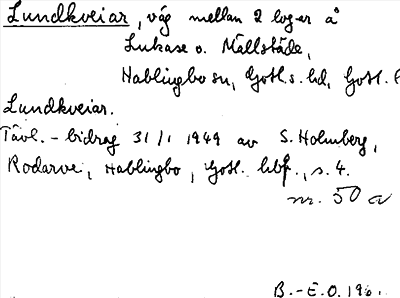 Lundkveiar, väg mellan 2 log-er å
Lukase o. Mällstäde,
Hablingbo sn, Gotl. s. hd, Gotl. l
Lundkveiar.
Tävl.-bidrag 31/1 1949 av S. Holmberg,
Rodarve, Hablingbo, Gotl. hbf., s. 4.
nr. 50 a
B.-E.O. 196